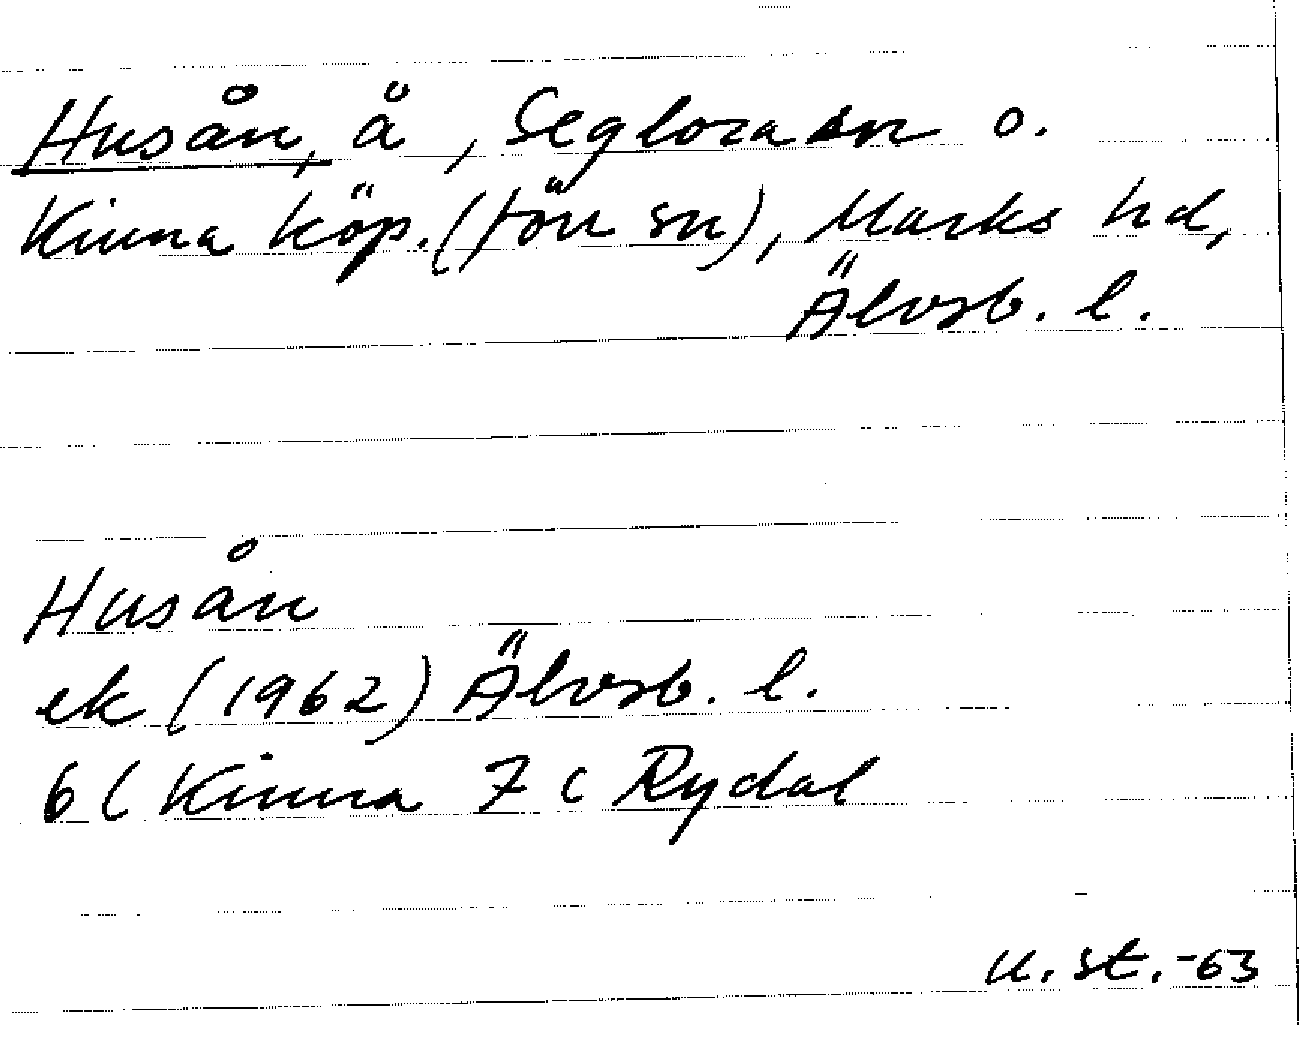 Husån, å, Seglora sn o.
Kinna köp. (förr sn), Marks hd,
Älvsb. l.
Husån
ek (1962) Älvsb. l.
6 C Kinna 7 C Rydal
U. St. -63